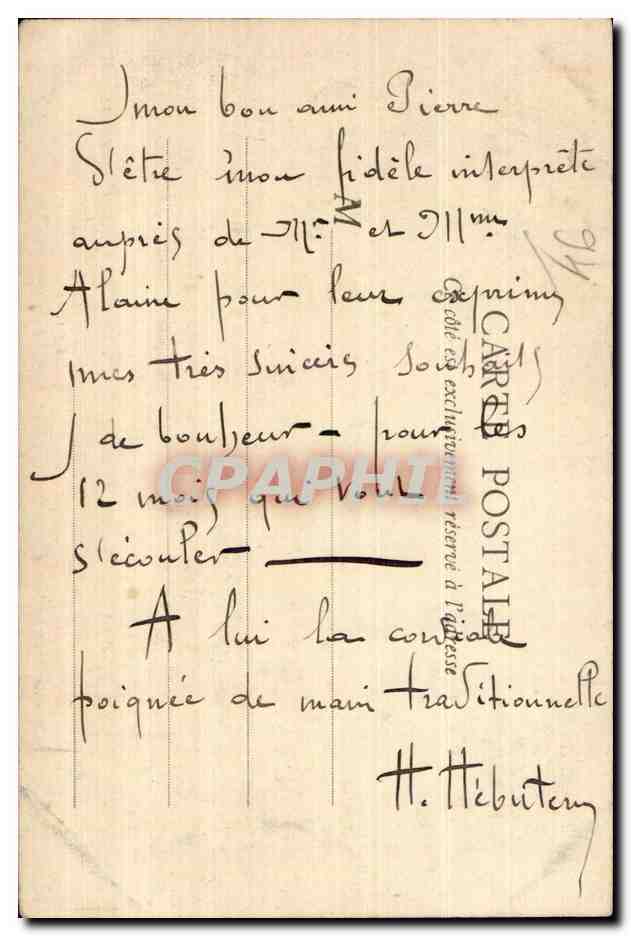 J mon bon ami Pierre
D'être mon fidèle interprète
auprès de Mr et Mme
Alaine pour leur exprimer
mes très sincères souhaits
de bonheur - pour les
12 mois qui vont
s'écouler
A lui la cordiale
poignée de main traditionnelle
H. Hébutern
M
94
CARTE POSTALE
Ce côté est exclusivement réservé à l'adresse
CPAPHIL